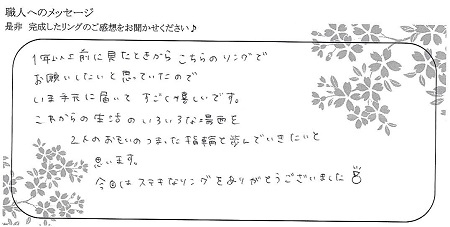 職人へのメッセージ
是非 完成したリングのご感想をお聞かせください♪
1年以上前に見たときから こちらのリングで
お願いしたいと思っていたので
いま手元に届いて すごく嬉しいです。
これからの生活の いろいろな場面を
2人のおもいのつまった指輪と歩んでいきたいと
思います。
今回はステキなリングをありがとうございました